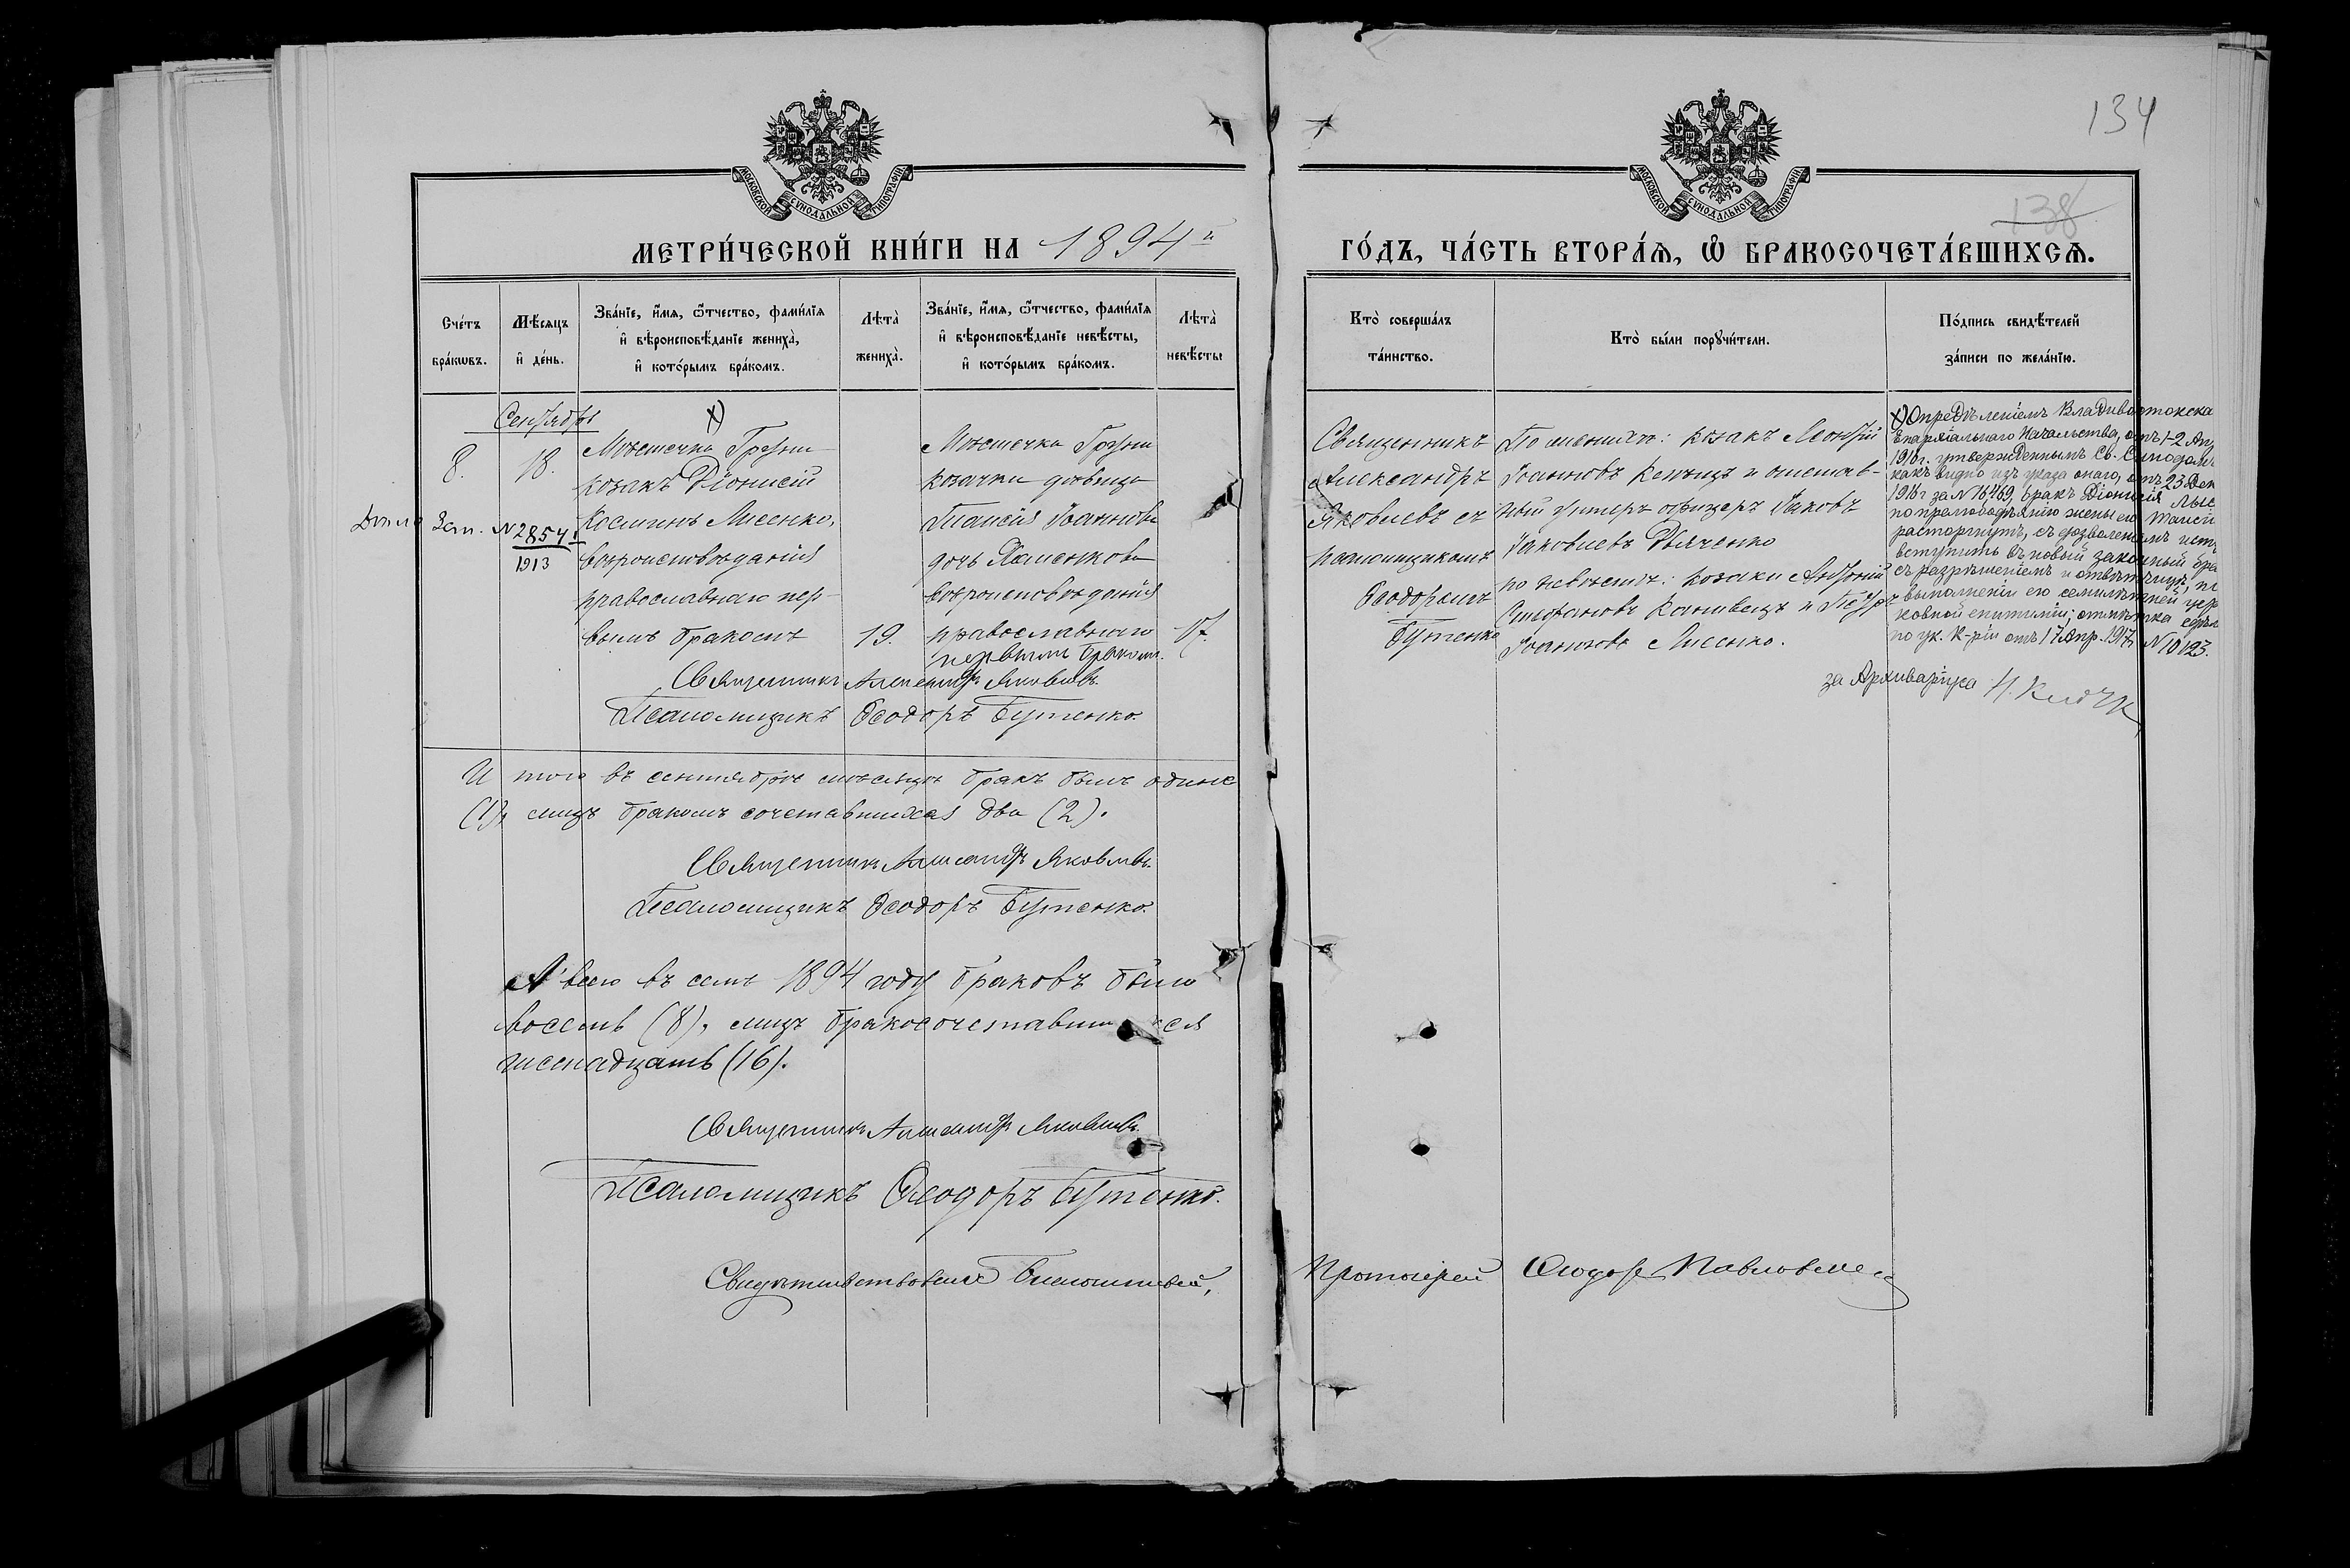 134
138
МОСКОВСКОЙ СѴНОДАЛЬНОЙ ТИПОГРАФІИ
МОСКОВСКОЙ СѴНОДАЛЬНОЙ ТИПОГРАФІИ
МЕТРИ́ЧЕСКОЙ КНИ́ГИ НА 1894й
ГО́ДЪ, ЧА́СТЬ ВТОРА́Я, Ѿ БРАКОСОЧЕТА́ВШИХСЯ.
Сче́тъ
бра́кωвъ.
Мѣ́сяцъ
и҆ де́нь.
Зва́нїе, и҆́мя, ѻ҆́тчество, фами́лїя
и҆ вѣроисповѣ́данїе жениха̀,
и҆ кото́рымъ бра́комъ.
Лѣта̀
жениха̀.
Зва́нїе, и҆́мя, ѻ҆́тчество, фами́лїя
и҆ вѣроисповѣ́данїе невѣ́сты,
и҆ кото́рымъ бра́комъ.
Лѣта̀
невѣ́сты
Кто̀ соверша́лъ
та́инство.
Кто̀ бы́ли порꙋчи́тели.
По́дпись свидѣ́телей
за́писи по жела́нїю.
Сентября
8.
18.
х)
Мѣстечка Грузки
козакъ Діонисій
Косминъ Лисенко,
вѣроисповѣданія
православнаго пер-
вымъ бракомъ
19.
N 28541
1913
Мѣстечка Грузки
козачка дѣвица
Таисія Іоаннова
дочь
вѣроисповѣданія
православнаго
первымъ бракомъ.
17.
Священникъ Александръ Яковлевъ
Псаломщикъ Ѳеодоръ Бутенко.
Священникъ
Александръ
Яковлевъ съ
псаломщикомъ
Ѳеодоромъ
Бутенко
По женихѣ: козакъ Леонтій
Іоанновъ и отстав-
ный унтеръ офицеръ Іаковъ
Іаковлевъ Дьяченко
по невѣстѣ: козаки
Стефановъ Каневецъ и Петръ
Іоанновъ Лисенко.
х) Опредѣленіемъ Владивостокска
Епархіальнаго Начальства, отъ 1-2 Апр
1916 г. утвержденнымъ Св. Синодомъ
какъ видно изъ указа онаго, отъ 23 Дек
1916 г за N 16469, бракъ Діонисія Лысе
по прелюбодѣянію жены его Таисіи
расторгнутъ, съ дозволеніемъ
вступить въ новый законный бра
съ разрѣшеніемъ и отвѣтчицѣ, по
выполненіи ею семилѣтней цер
ковной епитиміи; отмѣтка сдѣл
по ук. К-ріи отъ 17 Апр. 1917 г. N 10123.
за Архиваріуса Н.
И того въ сентябрѣ мѣсяцѣ бракъ былъ одинъ
(1), лицъ бракомъ сочетавшихся два (2).
Священникъ Александръ Яковлевъ.
Псаломщикъ Ѳеодоръ Бутенко.
А всего въ семъ 1894 году браковъ было
восемь (8), лицъ бракосочетавшихся
шеснадцать (16).
Священникъ Александръ Яковлевъ.
Псаломщикъ Ѳеодоръ Бутенко.
Свидѣтельствовалъ Благочинный,
Протоіерей Ѳеодоръ